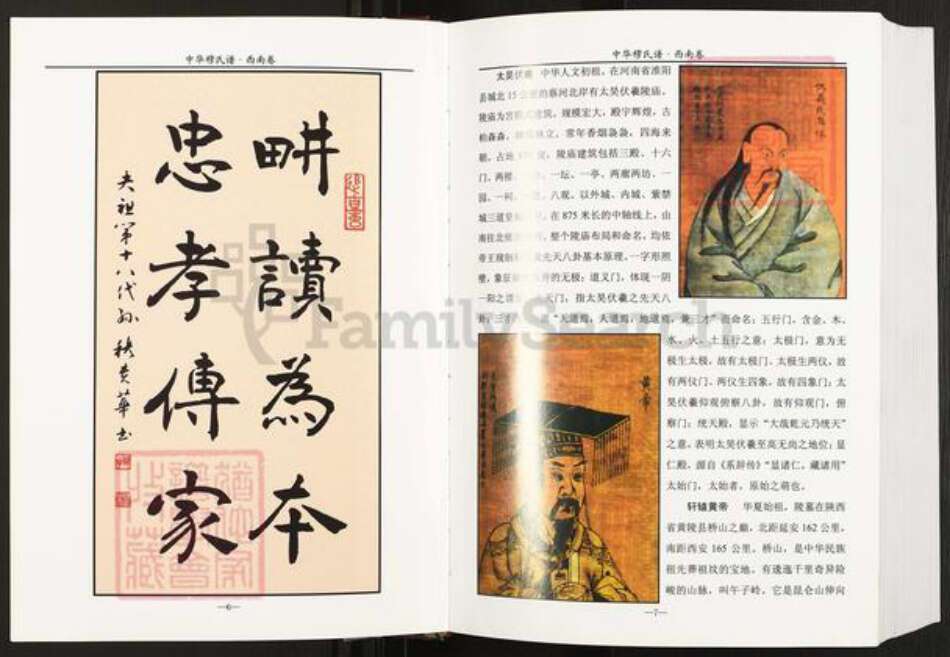 中华穆氏谱·西南卷
畊讀為本
忠孝傳家
夫祖第十八代孙 穆贵華书
—6—
中华穆氏谱·西南卷
太昊伏羲 中华人文初祖。在河南省淮阳
县城北15公里的蔡河北岸有太昊伏羲陵庙。
陵庙为宫殿式建筑，规模宏大，殿宇辉煌，古
柏森森，林立，常年香烟袅袅，四海来
朝。占地，陵庙建筑包括三殿、十六
门、两楼、一坛、一亭、两廊两坊、一
园、一祠、八观。以外城、内城、紫禁
城三道皇，在875米长的中轴线上，由
南往北，整个陵庙布局和命名，均依
帝王规制，先天八卦基本原理。一字形照
壁，象征的无极；道义门，体现一阴
一阳之谓；天门，指太昊伏羲之先天八
卦；三，“天道焉，人道焉，地道焉，兼三才”而命名；五行门，含金、木、
水、火、土五行之意；太极门，意为无
极生太极，故有太极门、太极生两仪，故
有两仪门、两仪生四象，故有四象门；太
昊伏羲仰观俯察八卦，故有仰观门，俯
察门；统天殿，显示“大哉乾元乃统天”
之意，表明太昊伏羲至高无尚之地位；显
仁殿，源自《系辞传》“显诸仁，藏诸用”
太始门，太始者，原始之萌也。
轩辕黄帝 华夏始祖，陵墓在陕西
省黄陵县桥山之巅，北距延安162公里，
南距西安165公里。桥山，是中华民族
祖先葬祖坟的宝地。有逶迤千里奇异险
峻的山脉，叫午子岭，它是昆仑山伸向
黄帝
—7—
FamilySearch